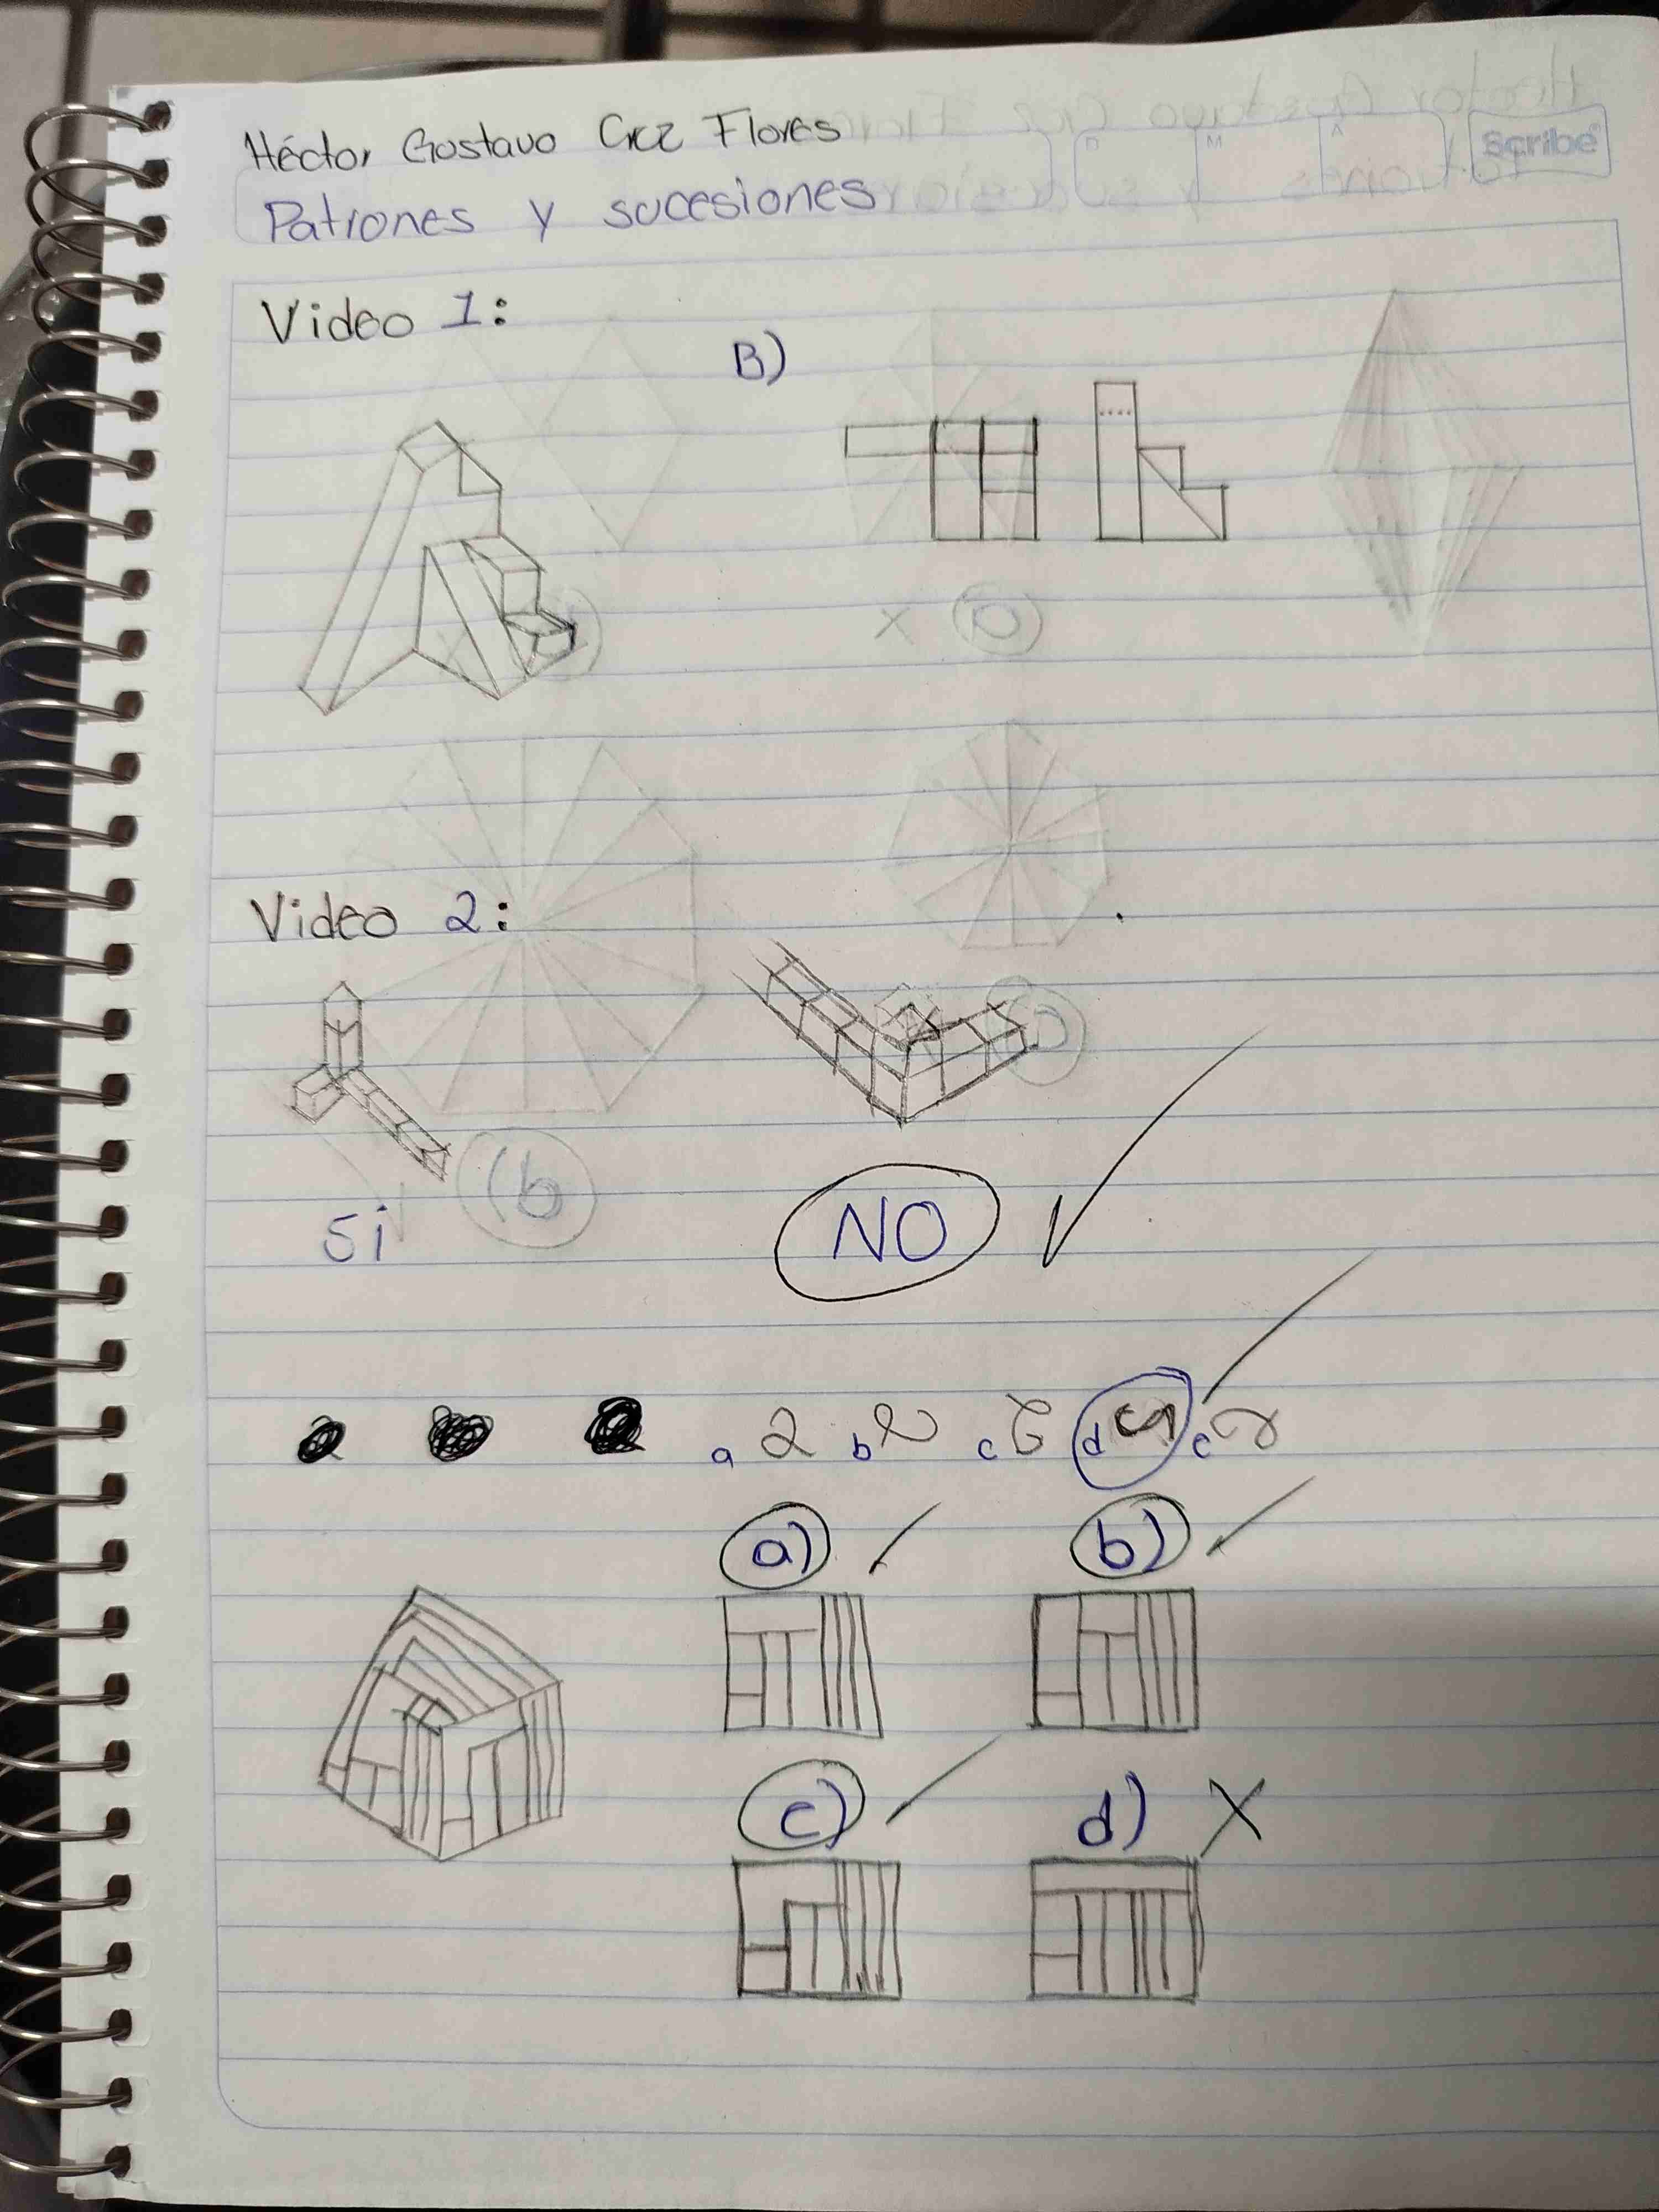 Héctor Gustavo Cruz Flores
Scribe
D M A
Patrones y sucesiones
Video 1:
B)
Video 2:
Si
NO
a b c d e
a) b)
c) d)